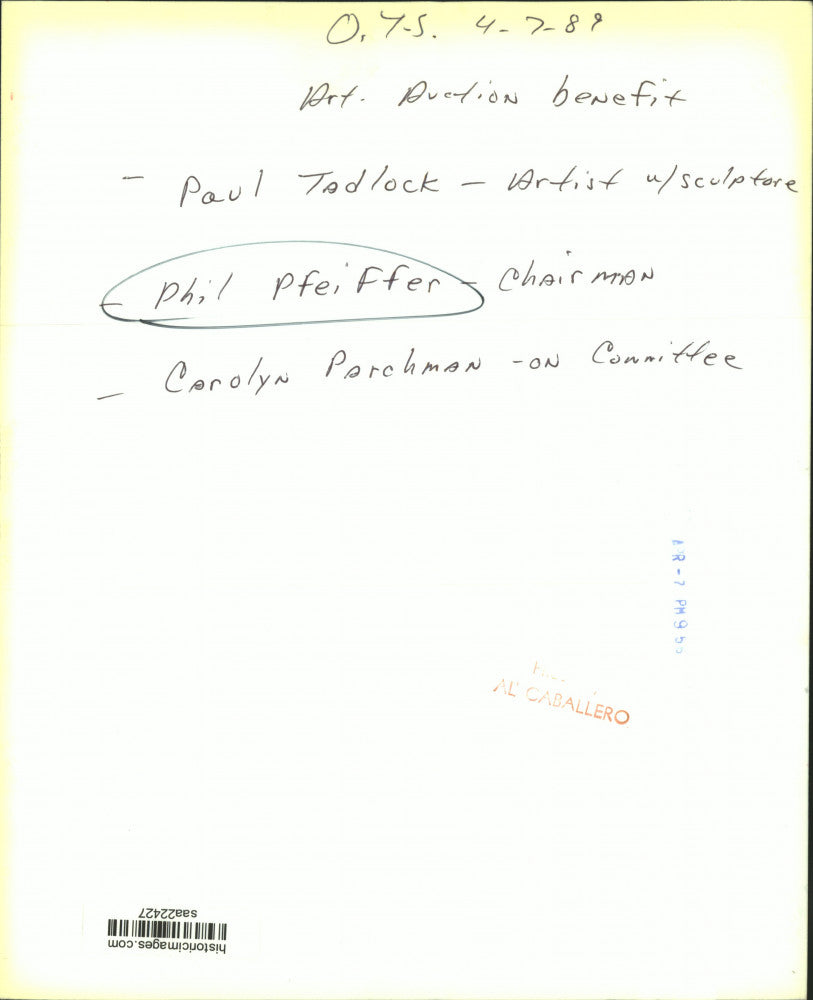 O.Y.S. 4-7-89
Art. Auction benefit
- Paul Tadlock - Artist w/sculptore
- Phil Pfeiffer - Chairman
- Carolyn Parchman - on Committee
R-7 PM 9 5
AL CABALLERO
historicimages.com
saa22427